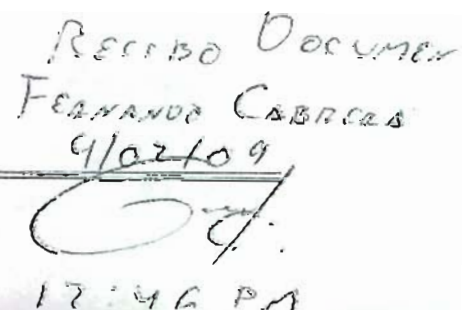 Recibo Documen
Fernando Cabrera
9/02/09
12:46 PM